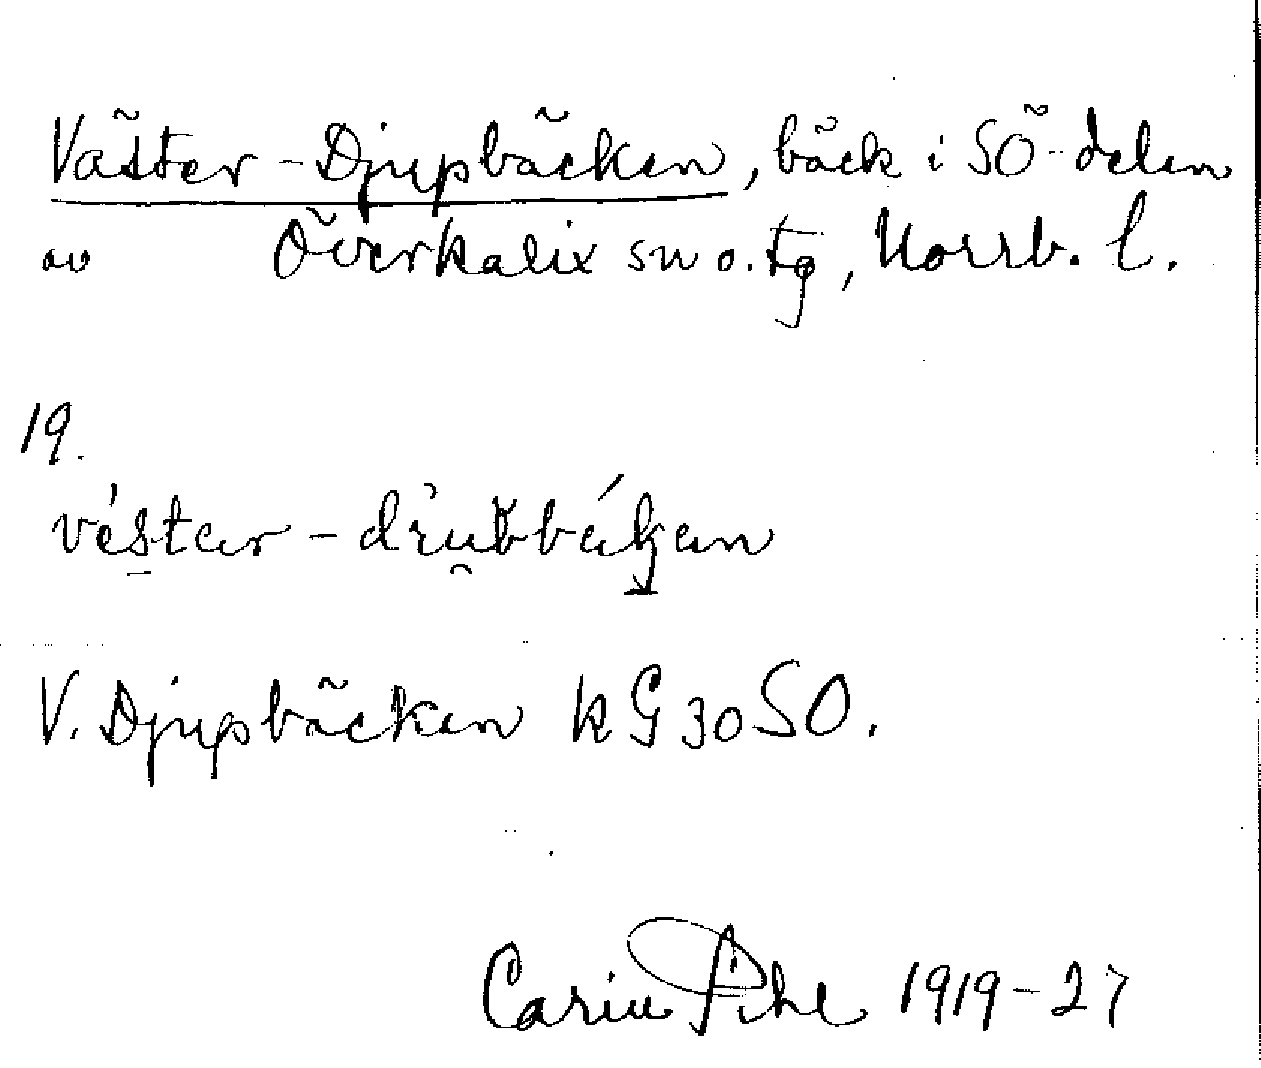 Väster-Djupbäcken, bäck i SÖ-delen
av Överkalix sn o. tg, Norrb. l.
19.
V. Djupbäcken kG30SO.
Carin Pihl 1919-27